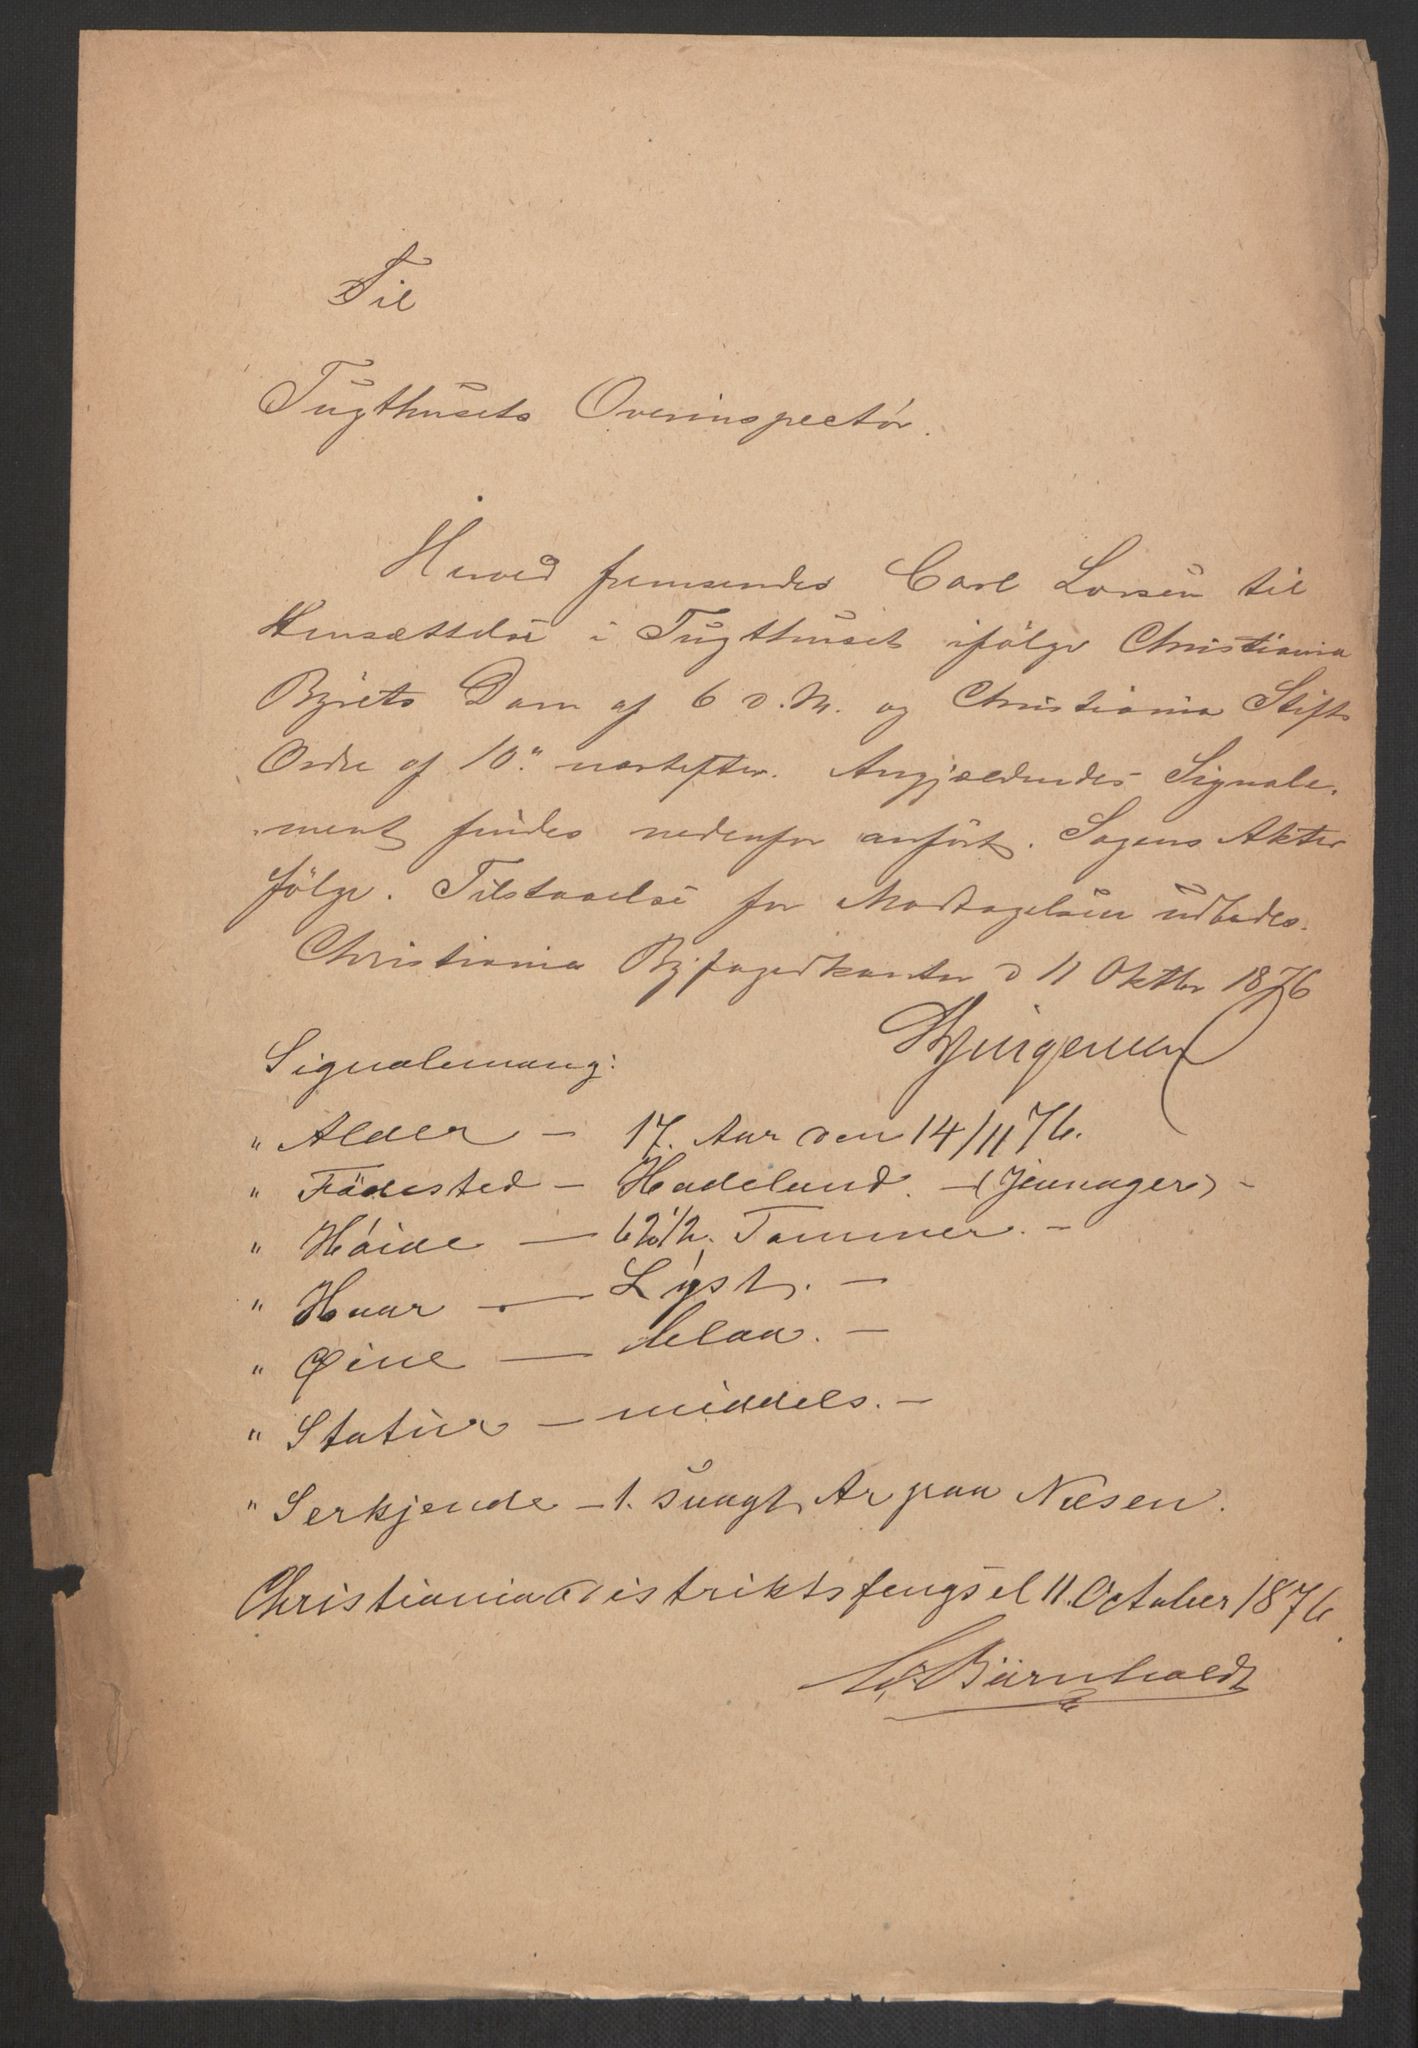 Til
Tugthusets Overinspectör.
Herved fremsendes Carl Larsen til
Hensættelse i Tugthuset ifölge Christiania
Byrets Dom af 6 d. M. og Christiania Stifts
Ordre af 10.de næstefter. Angjældendes Signale-
ment findes nedenfor anfört. Sagens Akter
fölge. Tilstaaelse for Modtagelsen udbedes.
Christiania Byfogedkontor d 11 Oktbr 1876
Signalemang:
" Alder – 17. Aar den 14/11 76.
" Födested – Hadeland. – (Jevnager) –
" Höide – 62 1/2. Tommer. –
" Haar – Lyst. –
" Øine – blaa. –
" Statur – middels. –
" Serkjende – 1. svagt Ar paa Næsen.
Christiania Distriktsfengsel 11. October 1876.